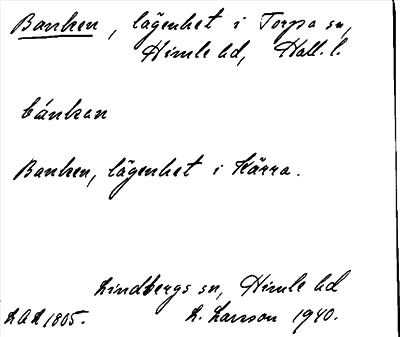 Banken, lägenhet i Torpa sn,
Himle hd, Hall. l.
bánkan
Banken, lägenhet i Kärra.
Lindbergs sn, Himle hd
1805. L. Larsson 1940.